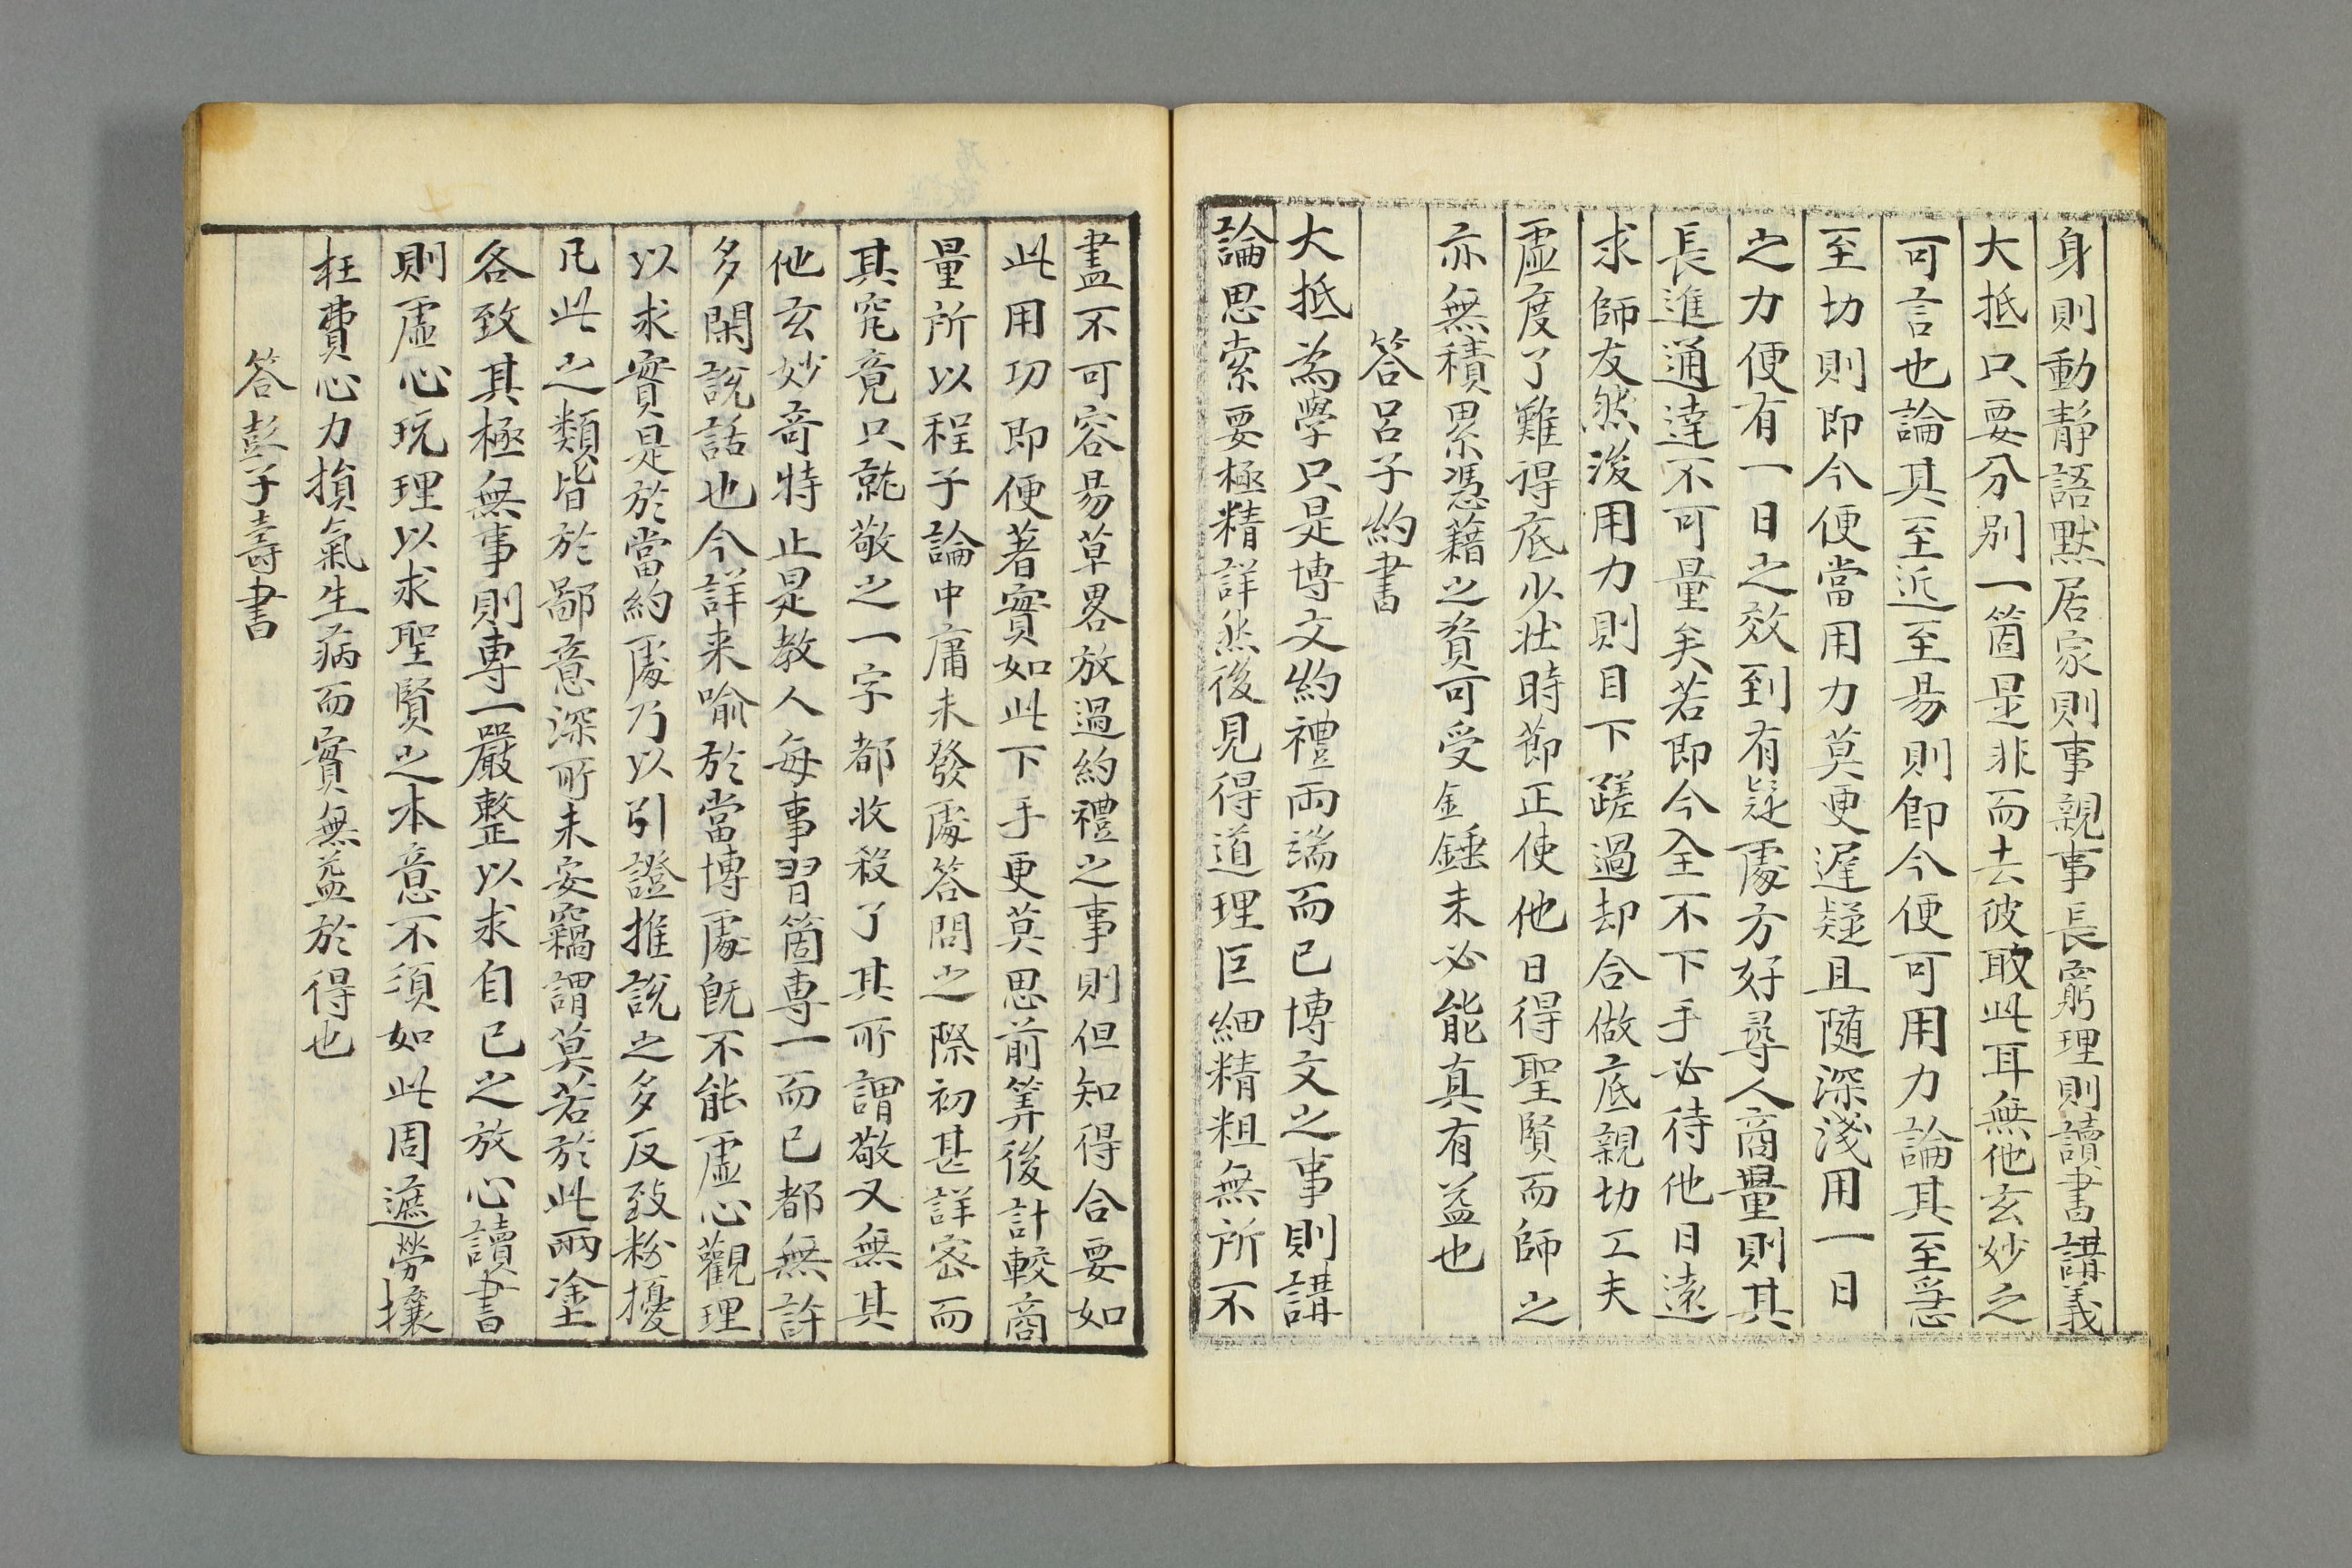 身則動靜語默居家則事親事長窮理則讀書講義
大抵只要分別一箇是非而去彼取此耳無他玄妙之
可言也論其至近至易則即今便可用力論其至急
至切則即今便當用力莫更遲疑且隨深淺用一日
之力便有一日之效到有疑處方好尋人商量則其
長進通達不可量矣若即今全不下手必待他日遠
求師友然後用力則目下蹉過却合做底親切工夫
虛度了難得底少壯時節正使他日得聖賢而師之
亦無積累憑藉之資可受金錘未必能真有益也
答呂子約書
大抵為學只是博文約禮兩端而已博文之事則講
論思索要極精詳然後見得道理巨細精粗無所不
盡不可容易草畧放過約禮之事則但知得合要如
此用功即便著實如此下手更莫思前筭後計較商
量所以程子論中庸未發處答問之際初甚詳密而
其究竟只就敬之一字都收殺了其所謂敬又無其
他玄妙奇特止是教人每事習箇專一而已都無許
多閑說話也今詳來喻於當博處既不能虛心觀理
以求實是於當約處乃以引證推說之多反致紛擾
凡此之類皆於鄙意深所未安竊謂莫若於此兩塗
各致其極無事則專一嚴整以求自己之放心讀書
則虛心玩理以求聖賢之本意不須如此周遮勞攘
枉費心力損氣生病而實無益於得也
答彭子壽書